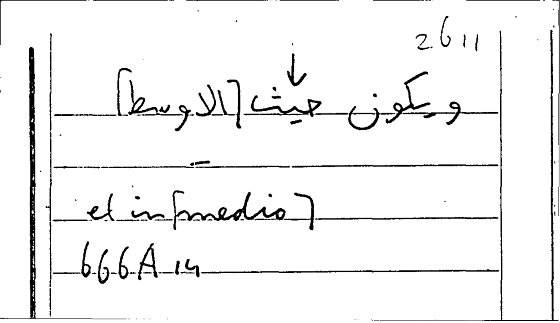 2611
↓
ويكون حيث [الاوسط]
–
et in [medio]
666A 14